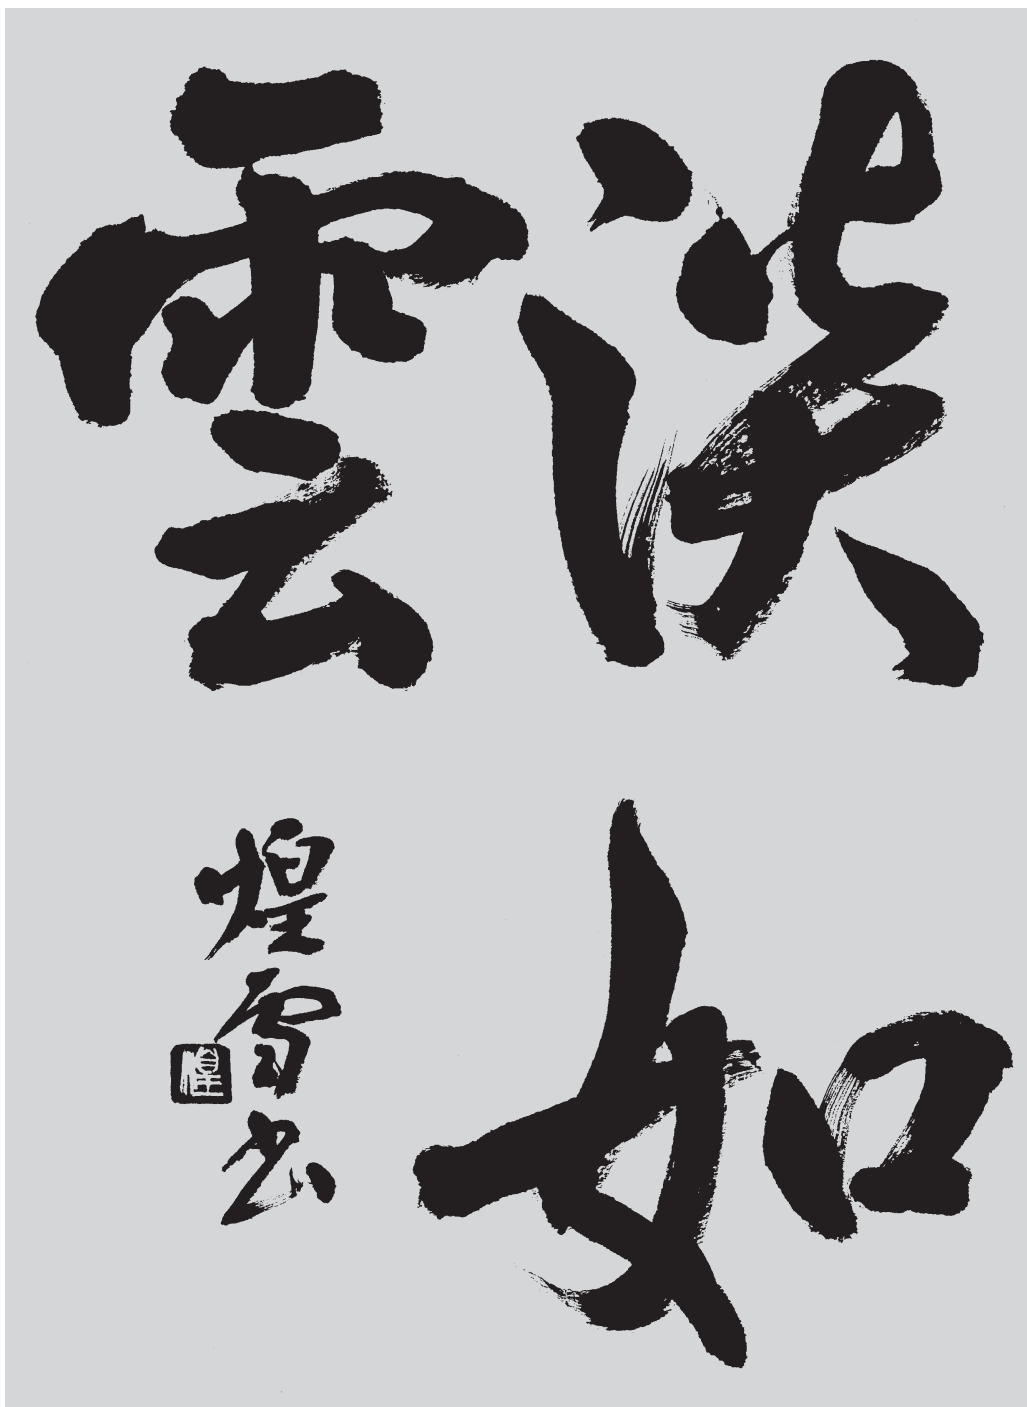 淡如
雲
煌雪书
煌